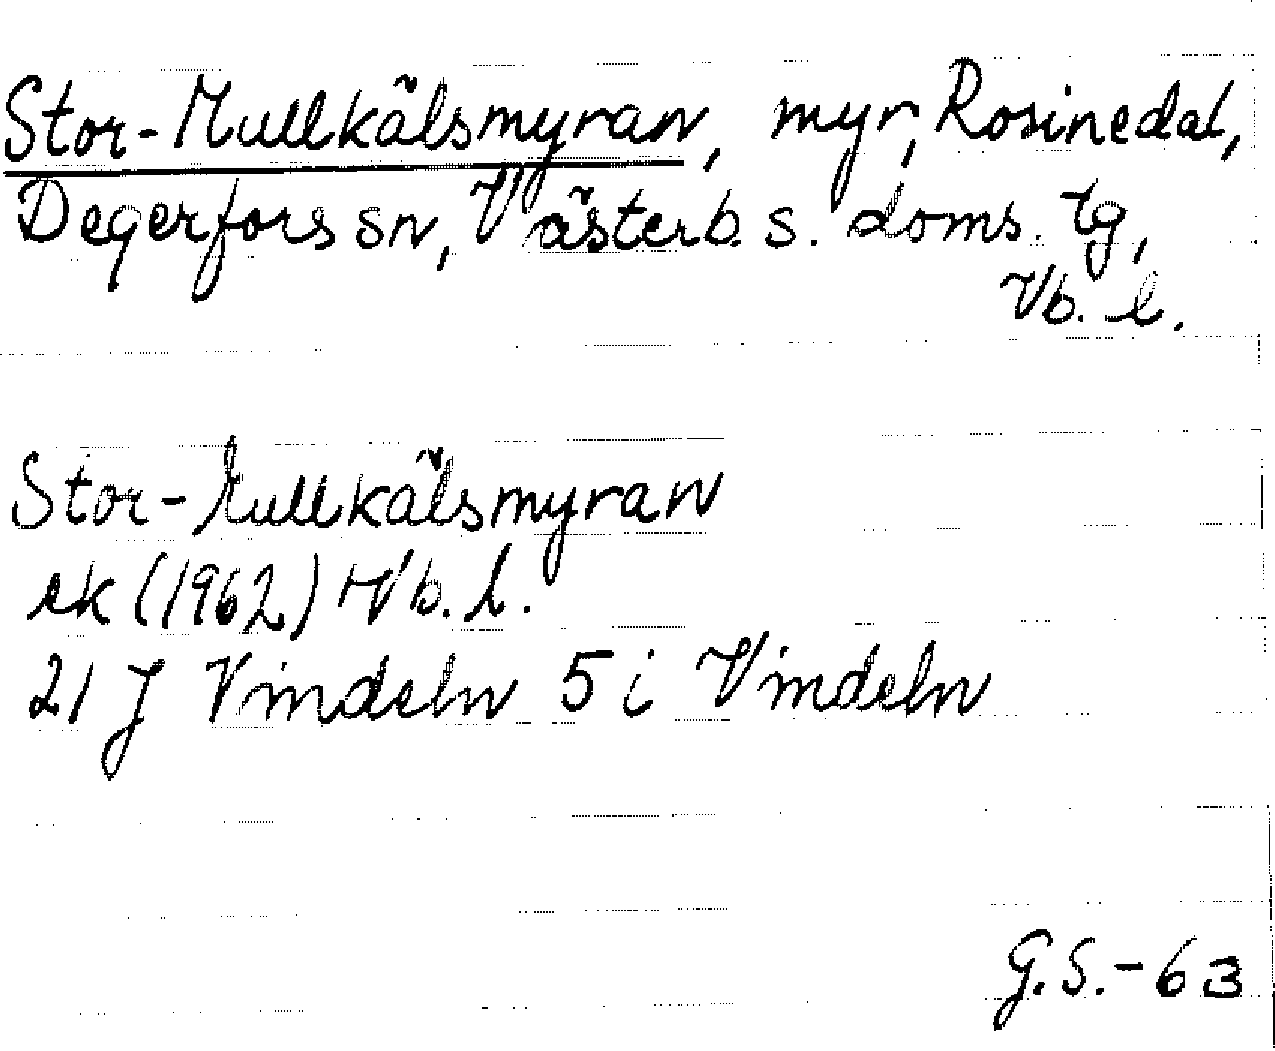 Stor-Mullkälsmyran, myr, Rosinedal,
Degerfors sn, Västerb. s. doms. tg,
Vb. l.
Stor-Mullkälsmyran
ek (1962) Vb. l.
21 J Vindeln 5 i Vindeln
G.S.-63